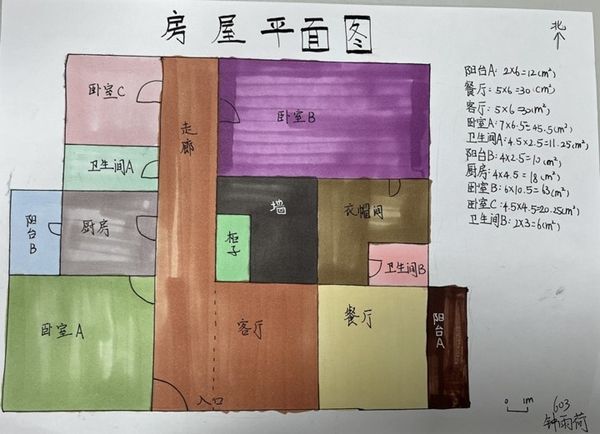 房屋平面图
北
卧室C
走廊
卧室B
卫生间A
阳台B
厨房
墙
柜子
衣帽间
卫生间B
卧室A
客厅
餐厅
阳台A
入口
阳台A: 2×6=12(m²)
餐厅: 5×6=30(m²)
客厅: 5×6=30(m²)
卧室A: 7×6.5=45.5(m²)
卫生间A: 4.5×2.5=11.25(m²)
阳台B: 4×2.5=10(m²)
厨房: 4×4.5=18(m²)
卧室B: 6×10.5=63(m²)
卧室C: 4.5×4.5=20.25(m²)
卫生间B: 2×3=6(m²)
0 1m
603
钟雨荷